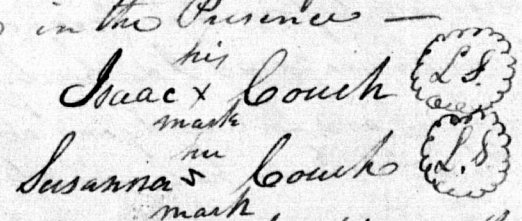 in the Presence —
his
Isaac x Couch L.S.
mark
her
Susanna s Couch L.S.
mark